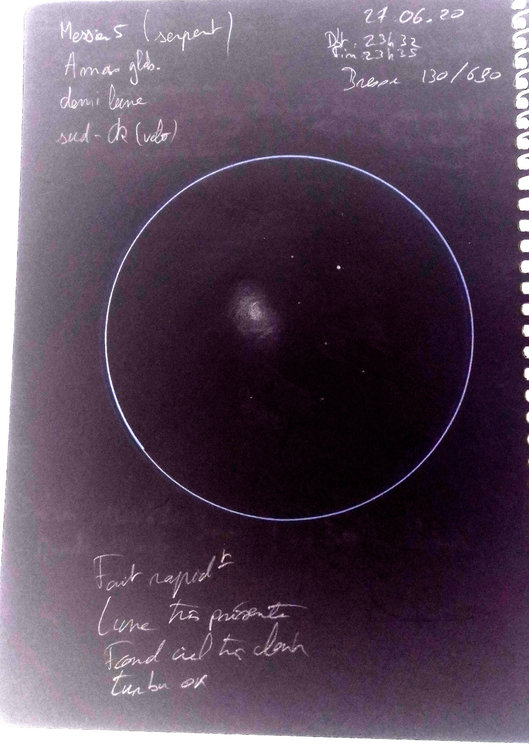 Messier 5 (serpent)
27.06.20
Amas glob.
Dbt. 23h32
Fin. 23h35
demi lune
Bresser 130/650
sud - ok
Fait rapid^t
Lune très présente
Fond ciel très clair
turbu ok